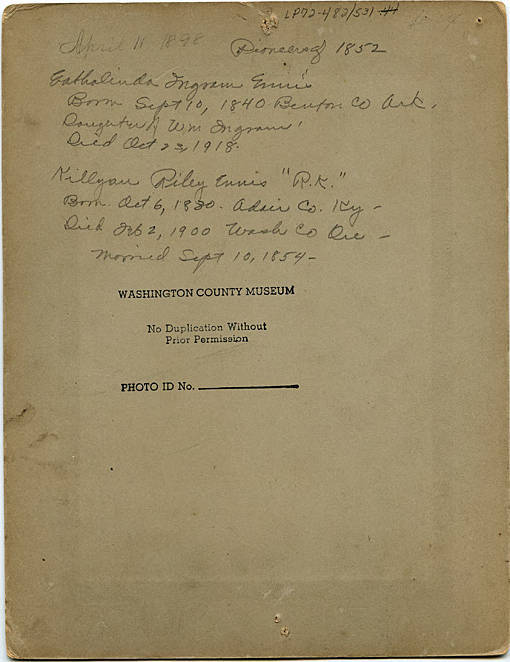 LP72-482/531
April 11 1898
Pioneers of 1852
Catholinda Ingram Ennis
Born Sept 10, 1840 Benton Co Ark.
Daughter of Wm Ingram
Died Oct 23, 1918.
Killgan Riley Ennis "R.K."
Born Oct 6, 1830. Adair Co. Ky -
Died Feb 2, 1900 Wash Co Ore -
Married Sept 10, 1854 -
WASHINGTON COUNTY MUSEUM
No Duplication Without
Prior Permission
PHOTO ID No.